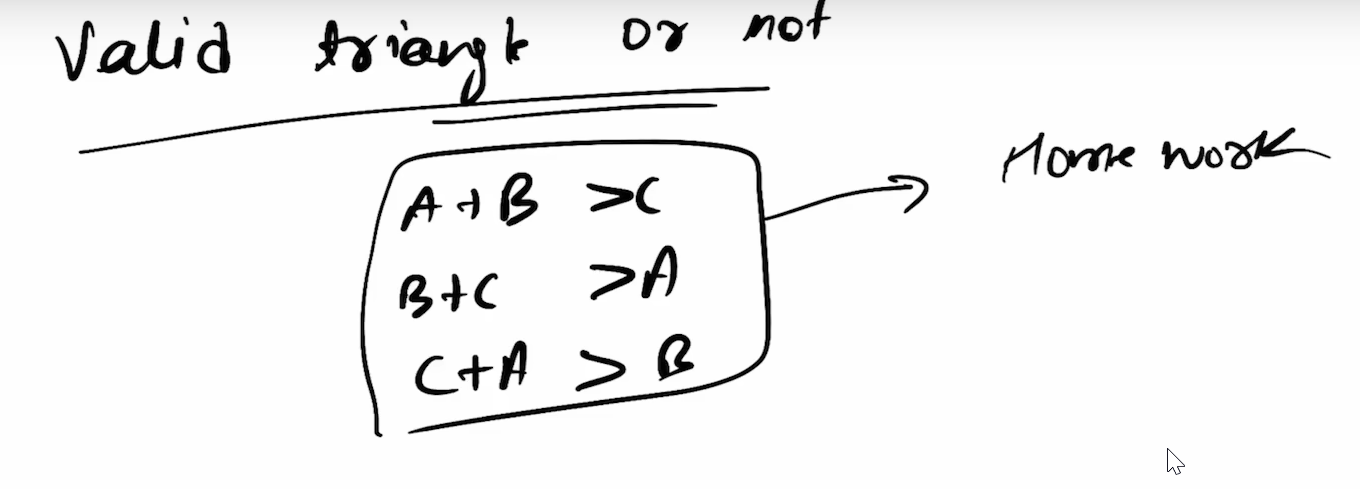 Valid triangle or not
A + B > C
B + C > A
C + A > B
Home work